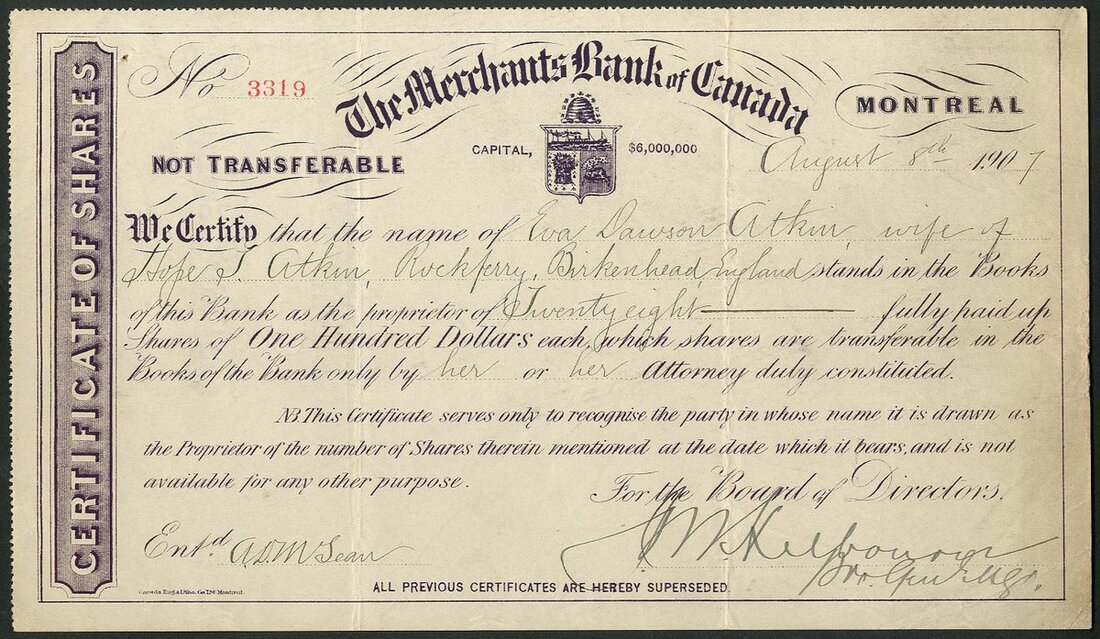 CERTIFICATE OF SHARES
No 3319
The Merchants Bank of Canada
MONTREAL
CAPITAL, $6,000,000
NOT TRANSFERABLE
August 8th 1907
We Certify that the name of Eva Dawson Atkin, wife of
Hope T. Atkin, Rockferry, Birkenhead, England stands in the Books
of this Bank as the proprietor of Twenty eight fully paid up
Shares of One Hundred Dollars each, which shares are transferable in the
Books of the Bank only by her or her Attorney duly constituted.
NB. This Certificate serves only to recognise the party in whose name it is drawn as
the Proprietor of the number of Shares therein mentioned at the date which it bears, and is not
available for any other purpose.
For the Board of Directors.
Entd
ALL PREVIOUS CERTIFICATES ARE HEREBY SUPERSEDED.
Montreal.